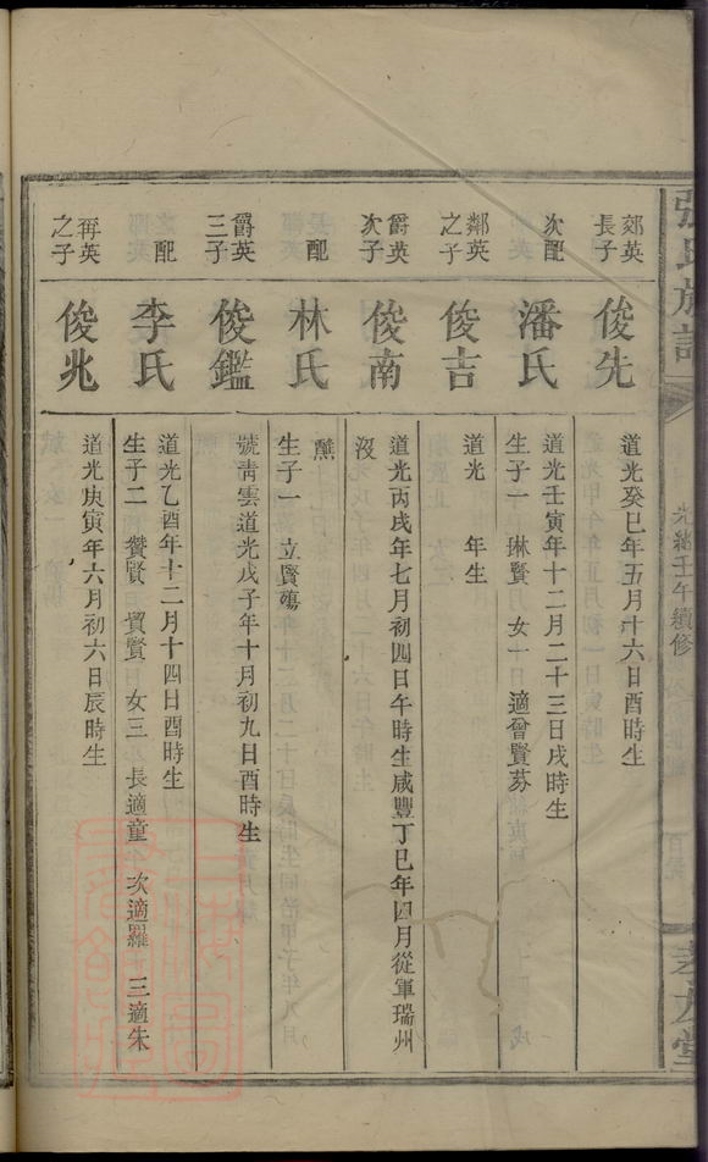 張氏族譜
光緒壬午續修
孝友堂
郊英長子
俊先
道光癸巳年五月十六日酉時生
次配
潘氏
道光壬寅年十二月二十三日戌時生
生子一 琳賢 女一 適曾賢芬
鄰英之子
俊吉
道光 年生
爵英次子
俊南
道光丙戌年七月初四日午時生咸豐丁巳年四月從軍瑞州
沒
配
林氏
醮
生子一 立賢殤
爵英三子
俊鑑
號青雲道光戊子年十月初九日酉時生
配
李氏
道光乙酉年十二月十四日酉時生
生子二 贊賢 貿賢 女三 長適童 次適羅 三適朱
再英之子
俊兆
道光庚寅年六月初六日辰時生